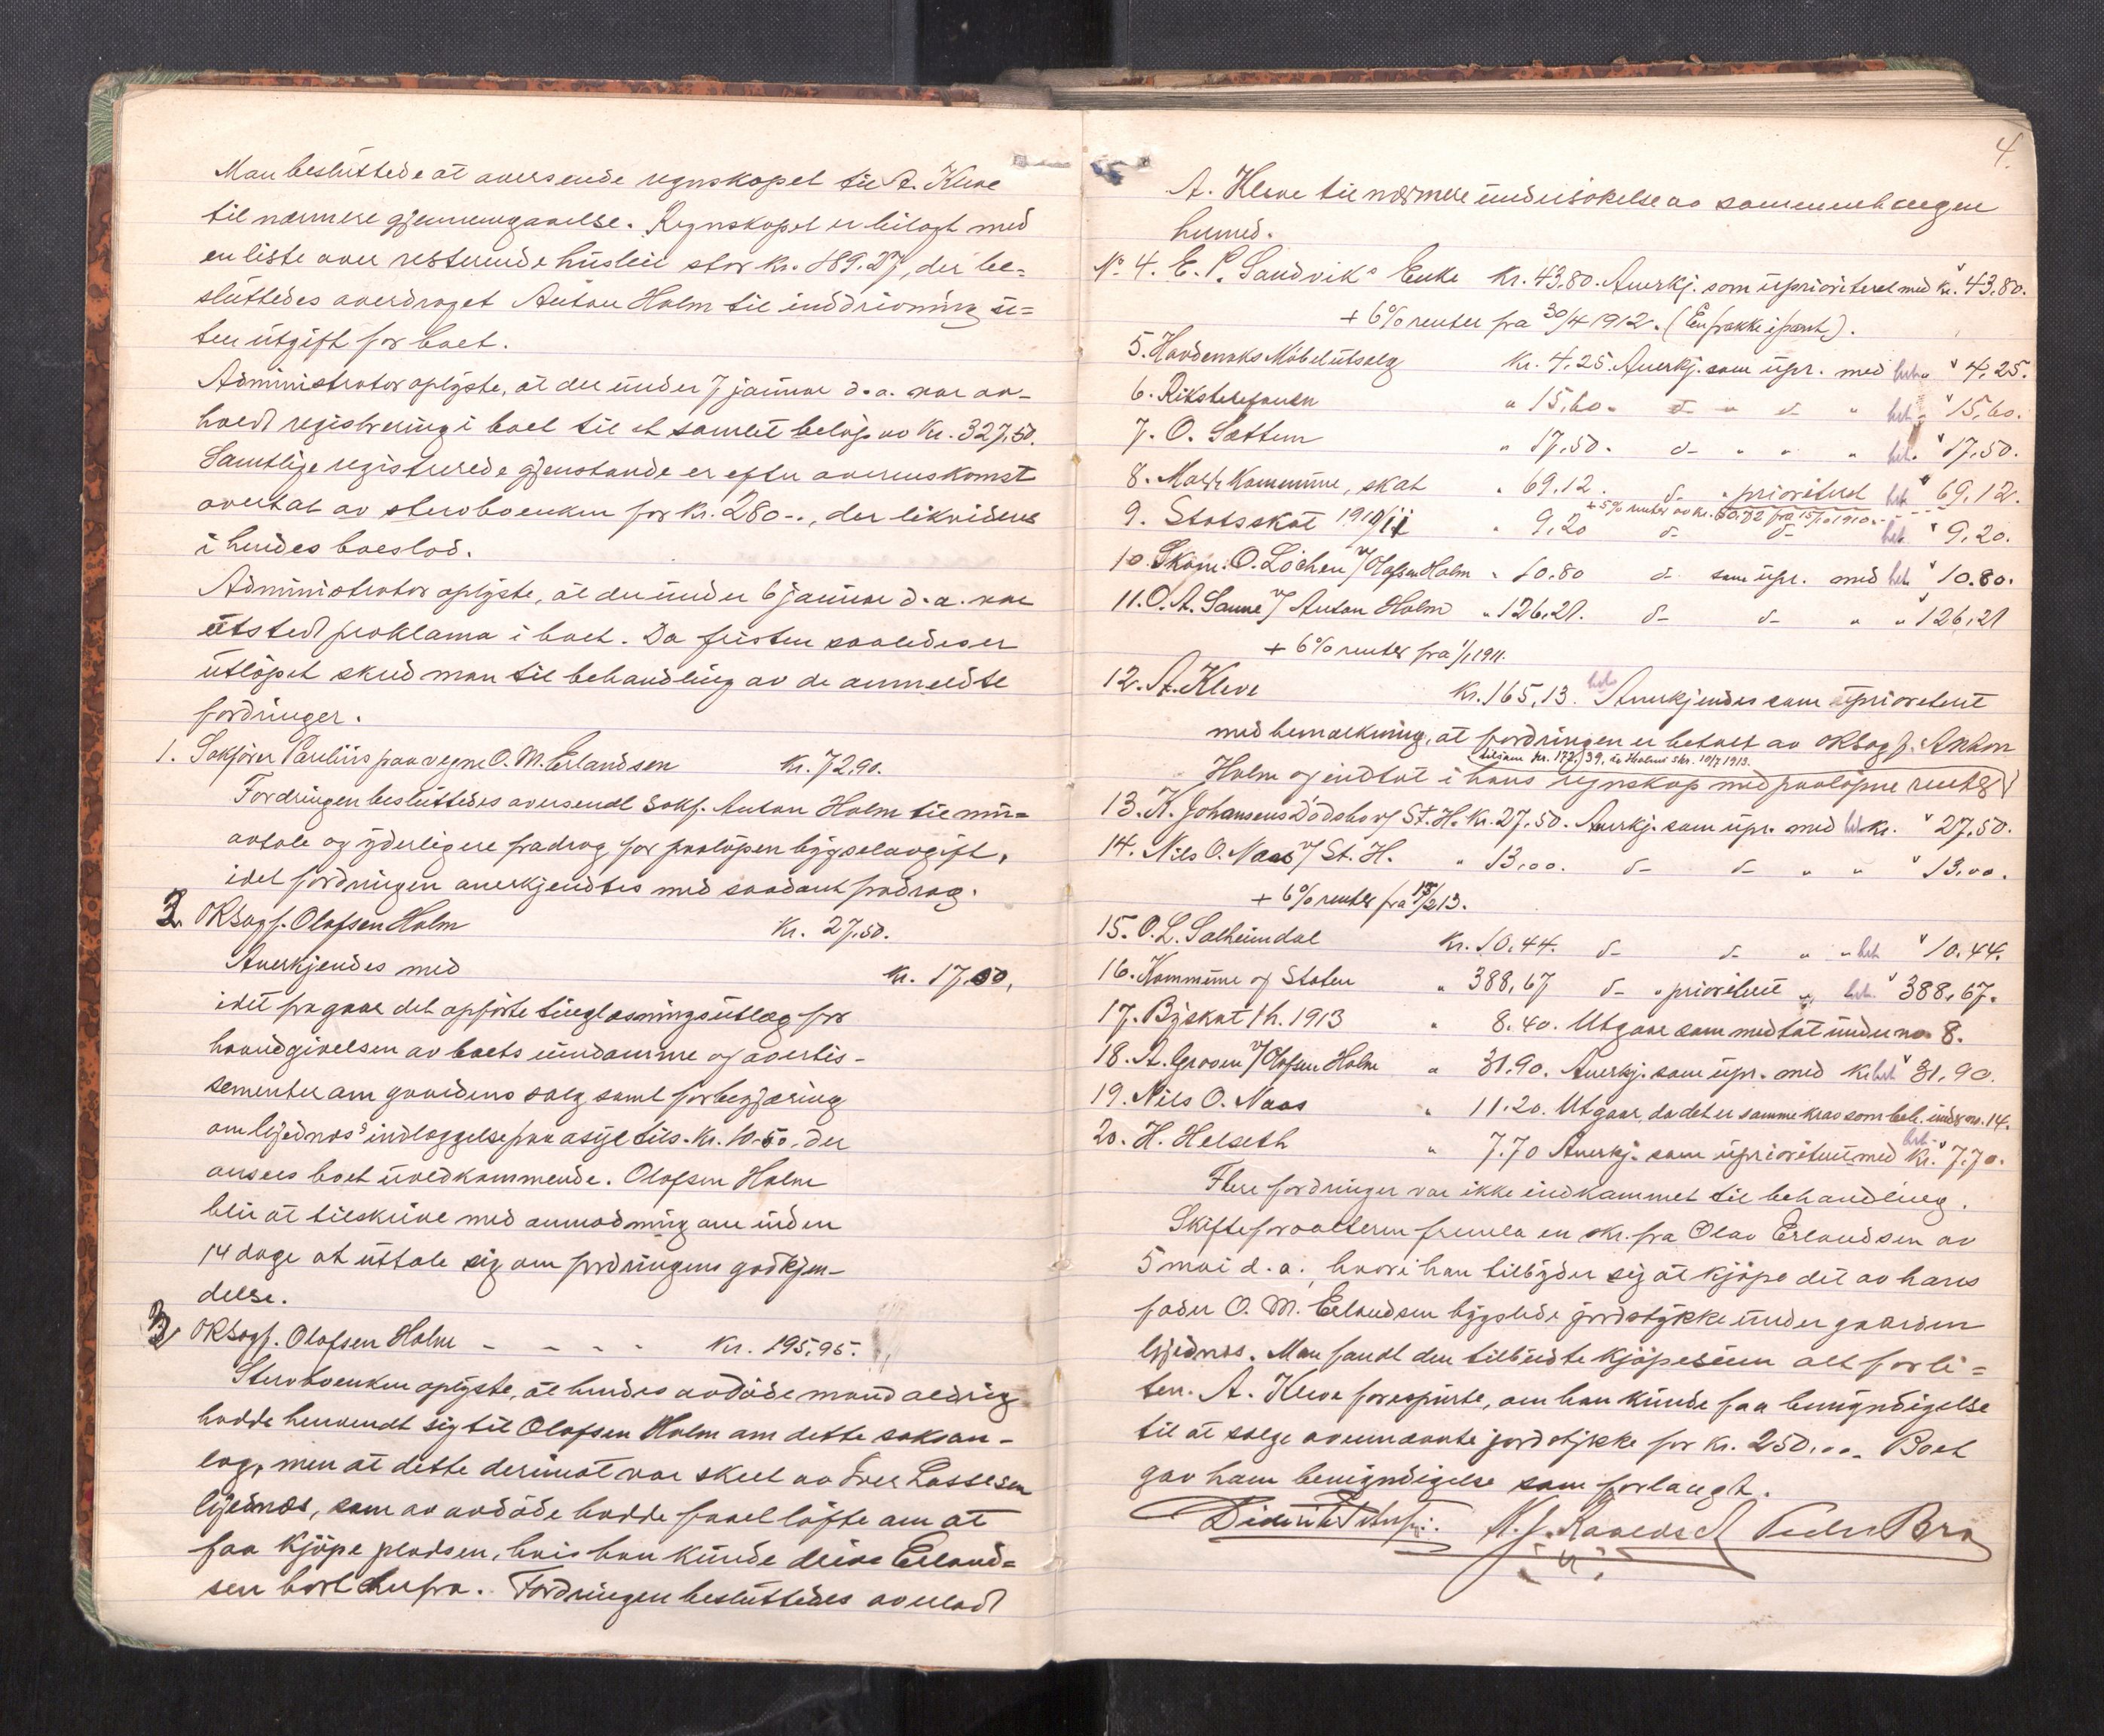 Man besluttede at oversende regnskapet til A. Kleve
til nærmere gjennemgaaelse. Regnskapet er bilagt med
en liste over resterende husleie stor kr. 189.27, der be=
sluttedes overdraget Anton Holm til inddrivning u=
ten utgift for boet.
Administrator oplyste, at der under 7 januar d.a. var av-
holdt registrering i boet til et samlet beløp av kr. 327,50.
Samtlige registrerede gjenstande er efter overenskomst
overtat av stervboenken for kr. 280-., der likvideres
i hendes boeslod.
Administrator oplyste, at der under 6 januar d.a. var
utstedt proklama i boet. Da fristen saaledes er
utløpet skred man til behandling av de anmeldte
fordringer.
1. Sakfører Paulius paa vegne O. M. Erlandsen kr. 72.90.
Fordringen besluttedes oversendt Sakf. Anton Holm til
avtale og yderligere fradrag for paaløpen bygselavgift,
idet fordringen anerkjendtes med saadant fradrag.
2. ORsagf. Olafsen Holm kr. 27,50.
Anerkjendes med kr. 17,00,
idet fragaar det opførte tinglæsningsutlæg for
haandgivelsen av boets eiendomme og avertis-
sementer om gaardens salg samt forbegjæring
om indlæggelse paa asyl tils. kr. 10.50. der
ansees boet uvedkommende. Olafsen Holm
blir at tilskrive med anmodning om inden
14 dage at uttale sig om fordringens godkjen-
delse.
3. ORsagf. Olafsen Holm - - - - kr. 195,95.
Stervboenken oplyste, at hendes avdøde mand aldrig
hadde henvendt sig til Olafsen Holm om dette saksan-
læg, men at dette derimot var skeet av Iver Lassesen
som av avdøde hadde faaet løfte om at
faa kjøpe pladsen, hvis han kunde drive Erland=
sen bort derfra. Fordringen besluttedes oversendt
4.
A. Kleve til nærmere undersøkelse av sammenhængen
hermed.
No. 4. E. P. Sandviks Enke kr. 43,80. Anerkj. som uprioriteret med kr. " 43,80.
+ 6% renter fra 30/4 1912. (En frakke i pant).
5. Havdenaks Møbelutsalg kr. 4,25. Anerkj. som upr. med bet. " 4,25.
6. Rikstelefonen " 15,60. d- " d- " bet. " 15,60.
7. O. Sættem " 17,50. d- " " " bet. " 17,50.
8. Kommune, skat " 69,12. d- " prioriteret bet. " 69,12.
+ 5% renter av kr. 50,72 fra 15/10 1910
9. Statsskat 1910/11 " 9,20 d- d- bet. " 9,20.
10. Skom. O. Lochen v/ Olafsen Holm " 10.80 d- som upr. med bet. " 10.80.
11. O. A. Sanne v/ Anton Holm " 126,21. d- d- " " 126,21
+ 6% renter fra 1/1 1911.
12. A. Kleve kr. 165,13. bet. Anerkjendes som uprioriteret
med bemerkning, at fordringen er betalt av ORsagf. Anton
tilsam kr. 172,39, se Holms skr. 10/7 1913.
Holm og indtat i hans regnskap med paaløpne renter
13. K. Johansens Dødsbo v/ St. H. kr. 27,50. Anerkj. som upr. med bet. kr. " 27,50.
14. Nils O. Naas v/ St. H. " 13,00. d- d- " " " 13,00.
+ 6% renter fra 15/2 13.
15. O. L. Salheimdal kr. 10,44. d- d- " " bet. " 10.44.
16. Kommune og Staten " 388,67 d- " prioriteret " bet. " 388,67.
17. Byskat 1 h. 1913 " 8.40. Utgaar som medtat under no 8.
18. A. Groven v/ Olafsen Holm " 31.90. Anerkj. som upr. med kr. bet. " 31,90.
19. Nils O. Naas " 11.20. Utgaar, da det er samme krav som beh. under no. 14.
20. H. Helseth " 7.70 Anerkj. som uprioriteret med bet. kr. " 7.70.
Flere fordringer var ikke indkommet til behandling.
Skifteforvalteren fremla en skr. fra Olav Erlandsen av
5 mai d.a., hvori han tilbyder sig at kjøpe det av hans
fader O. M. Erlandsen bygslede jordstykke under gaarden
Man fandt den tilbudte kjøpesum alt for li=
ten. A. Kleve forespurte, om han kunde faa bemyndigelse
til at sælge ovennævnte jordstykke for kr. 250,00. Boet
gav ham bemyndigelse som forlangt.
Peder Bra